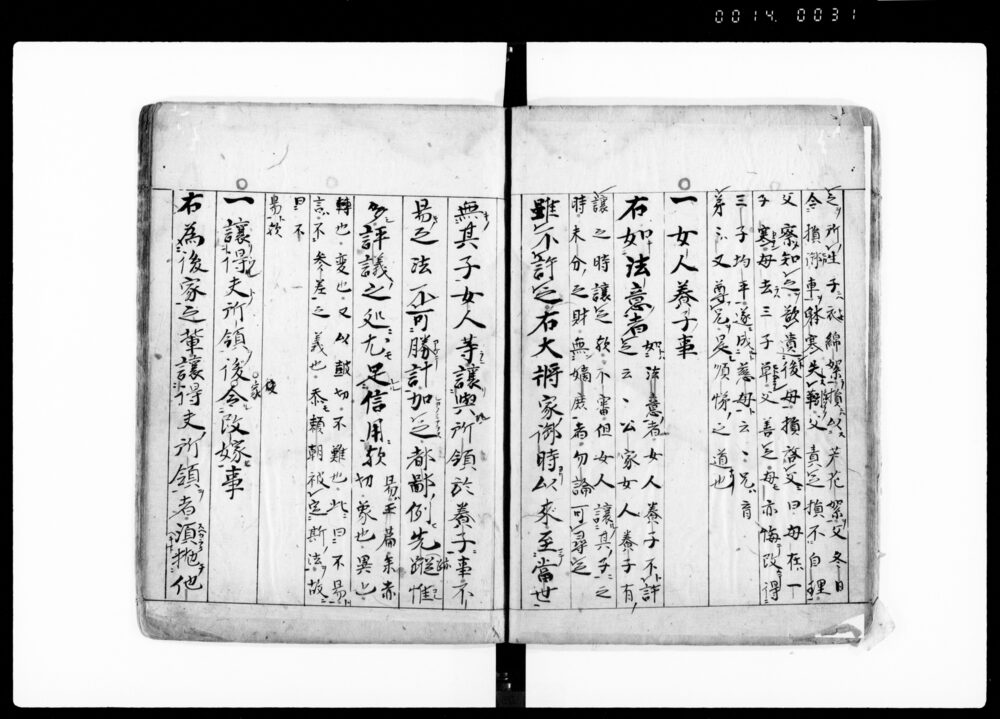 0014. 0031
之所生子衣綿絮損以芦花絮父冬日
令損御車躰寒失靷父責之損不自理
父察知之欲遣後母損啓父曰母在一
子寒母去三子單父善之母亦悔改得
三子均平遂成慈母云々兄育
弟々又尊兄是順悌之道也
一女人養子事
右如法意者如法意者女人養子不許
之云々公家女人養子有
讓之時讓之欤不審但女人讓其子之
時未分之財無嫡庶者勿論可尋之
雖不許之右大将家御時以来至當世
無其子女人等讓與所領於養子事不
易之法不可勝計加之都鄙例先蹤惟
多評議之処尤足信用欤
易玉篇余赤切象也異也
轉也変也又以豉切不難也此曰不易
言不参差之義也忝頼朝被定斯法故
曰不
易欤
一讓得夫所領後家令改嫁事
右為後家之輩讓得夫所領者須抛他